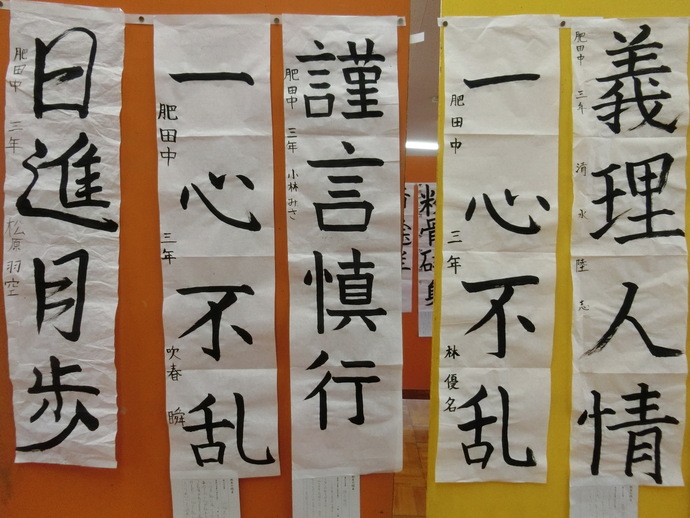 義理人情
肥田中 三年 清水陸志
一心不乱
肥田中 三年 林優名
謹言慎行
肥田中 三年 小林みさ
一心不乱
肥田中 三年 吹春 瞬
日進月歩
肥田中 三年 松原羽空
粉骨砕身